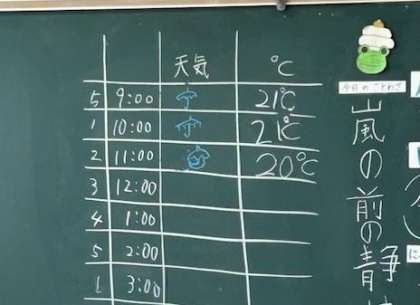 天気 ℃
5 9:00 21℃
1 10:00 21℃
2 11:00 20℃
3 12:00
4 1:00
5 2:00
1 3:00
今月のことわざ
嵐の前の静